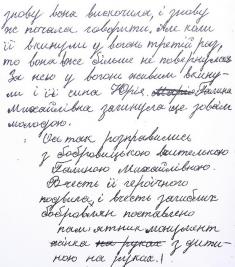 знову вона вискочила, і знову
же почала говорити. Але коли
її вкинули у вогонь третій раз,
то вона вже більше не повернулась.
За нею у вогонь живим вкину-
ли і її сина Юрія. Галина
Михайлівна загинула ще зовсім
молодою.
Ось так розправились
з бобровицькою вчителькою
Галиною Михайлівною.
В честь її героїчного
подвига, і в честь загиблих
бобравлян поставлено
пам'ятник монумент
жінка на руках з дити-
ною на руках.!